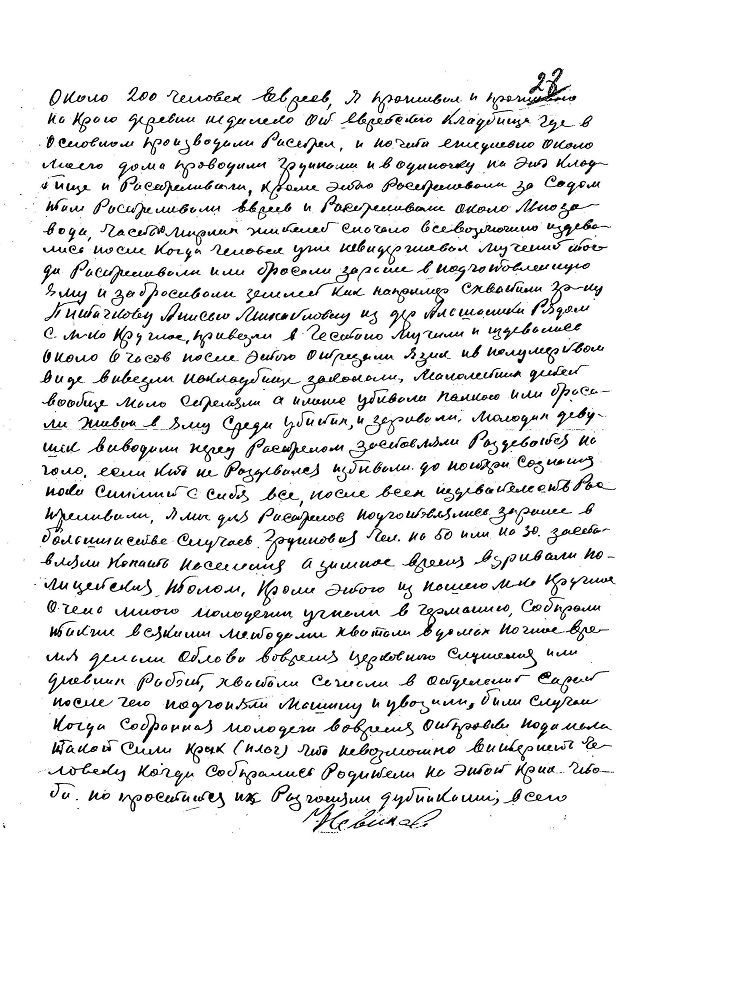 28
Около 200 человек Евреев, Я проживал и проживаю
на краю деревни недалеко от еврейского кладбища где в
основном производили расстрел, и почти ежедневно около
моего дома проводили группами и в одиночку на это клад
бище и расстреливали, кроме этого расстреливали за садом
там расстреливали евреев и расстреливали около
вода, часто мирных жителей сначало всевозможно издева-
лись после когда человек уже невидерживал мучений тог-
да расстреливали или бросали зарание в подготовленную
яму и забрасивали землей как например схватили гр-ку
Анисью Михайловну из дер Рядом
с м-ко Круглое, привезли в мучили и издевались
около 6 часов после этого отрезали язик и в полумертвом
виде вивезли накладбище закопали, малолетних детей
вообще мало стреляли а иначе убивали палкою или броса-
ли живой в яму среди убитих, и заривали. молодих деву-
шек виводили перед расстрелом заставляли раздеватся на
голо, если кто не раздевался избивали до потери сознания
пока снимит с себя все, после всех издевательств рас
треливали, ями для расстрелов подготовлялись зарание в
большинстве случаев групповая чел. на 50 или на 30. заста-
вляли копать населения а зимнее время взривали по-
лицейския толом, кроме этого из нашего м-ко Круглое
очень много молодежи угнали в германию, собирали
такие всякими методами хватали в домах ночное вре-
мя делали облови вовремя церковного служения или
дневних работ, хватали сгоняли в отделений сарай
после чего подгоняли машину и увозили, били случаи
когда собранная молодежи вовремя отправки поднимала
такой сили крик (плач) что невозможно витерпеть че-
ловеку когда собирались родители на этот крик что-
би. по проститься их разгоняли дубинками, всего